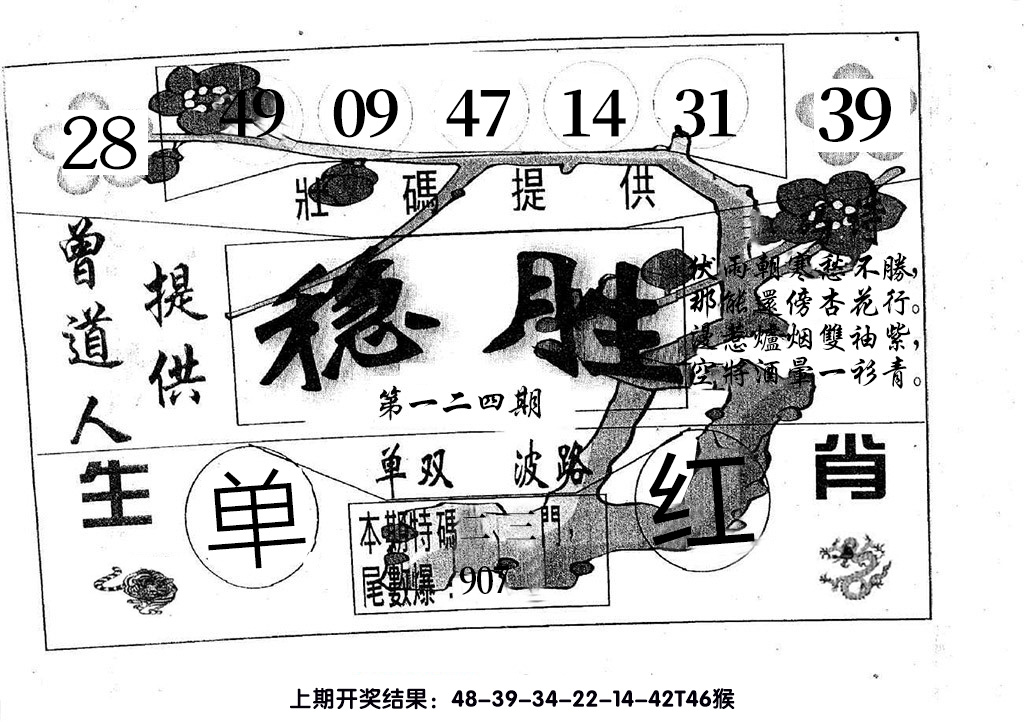 28 49 09 47 14 31 39
壯碼提供
特
曾道人
提供
稳胜
第一二四期
伏雨朝寒愁不勝，
那能還傍杏花行。
浸惹爐烟雙袖紫，
空将酒暈一衫青。
生肖
单双 波路
单
红
本期特碼二、三門，
尾數爆：907
上期开奖结果：48-39-34-22-14-42T46猴